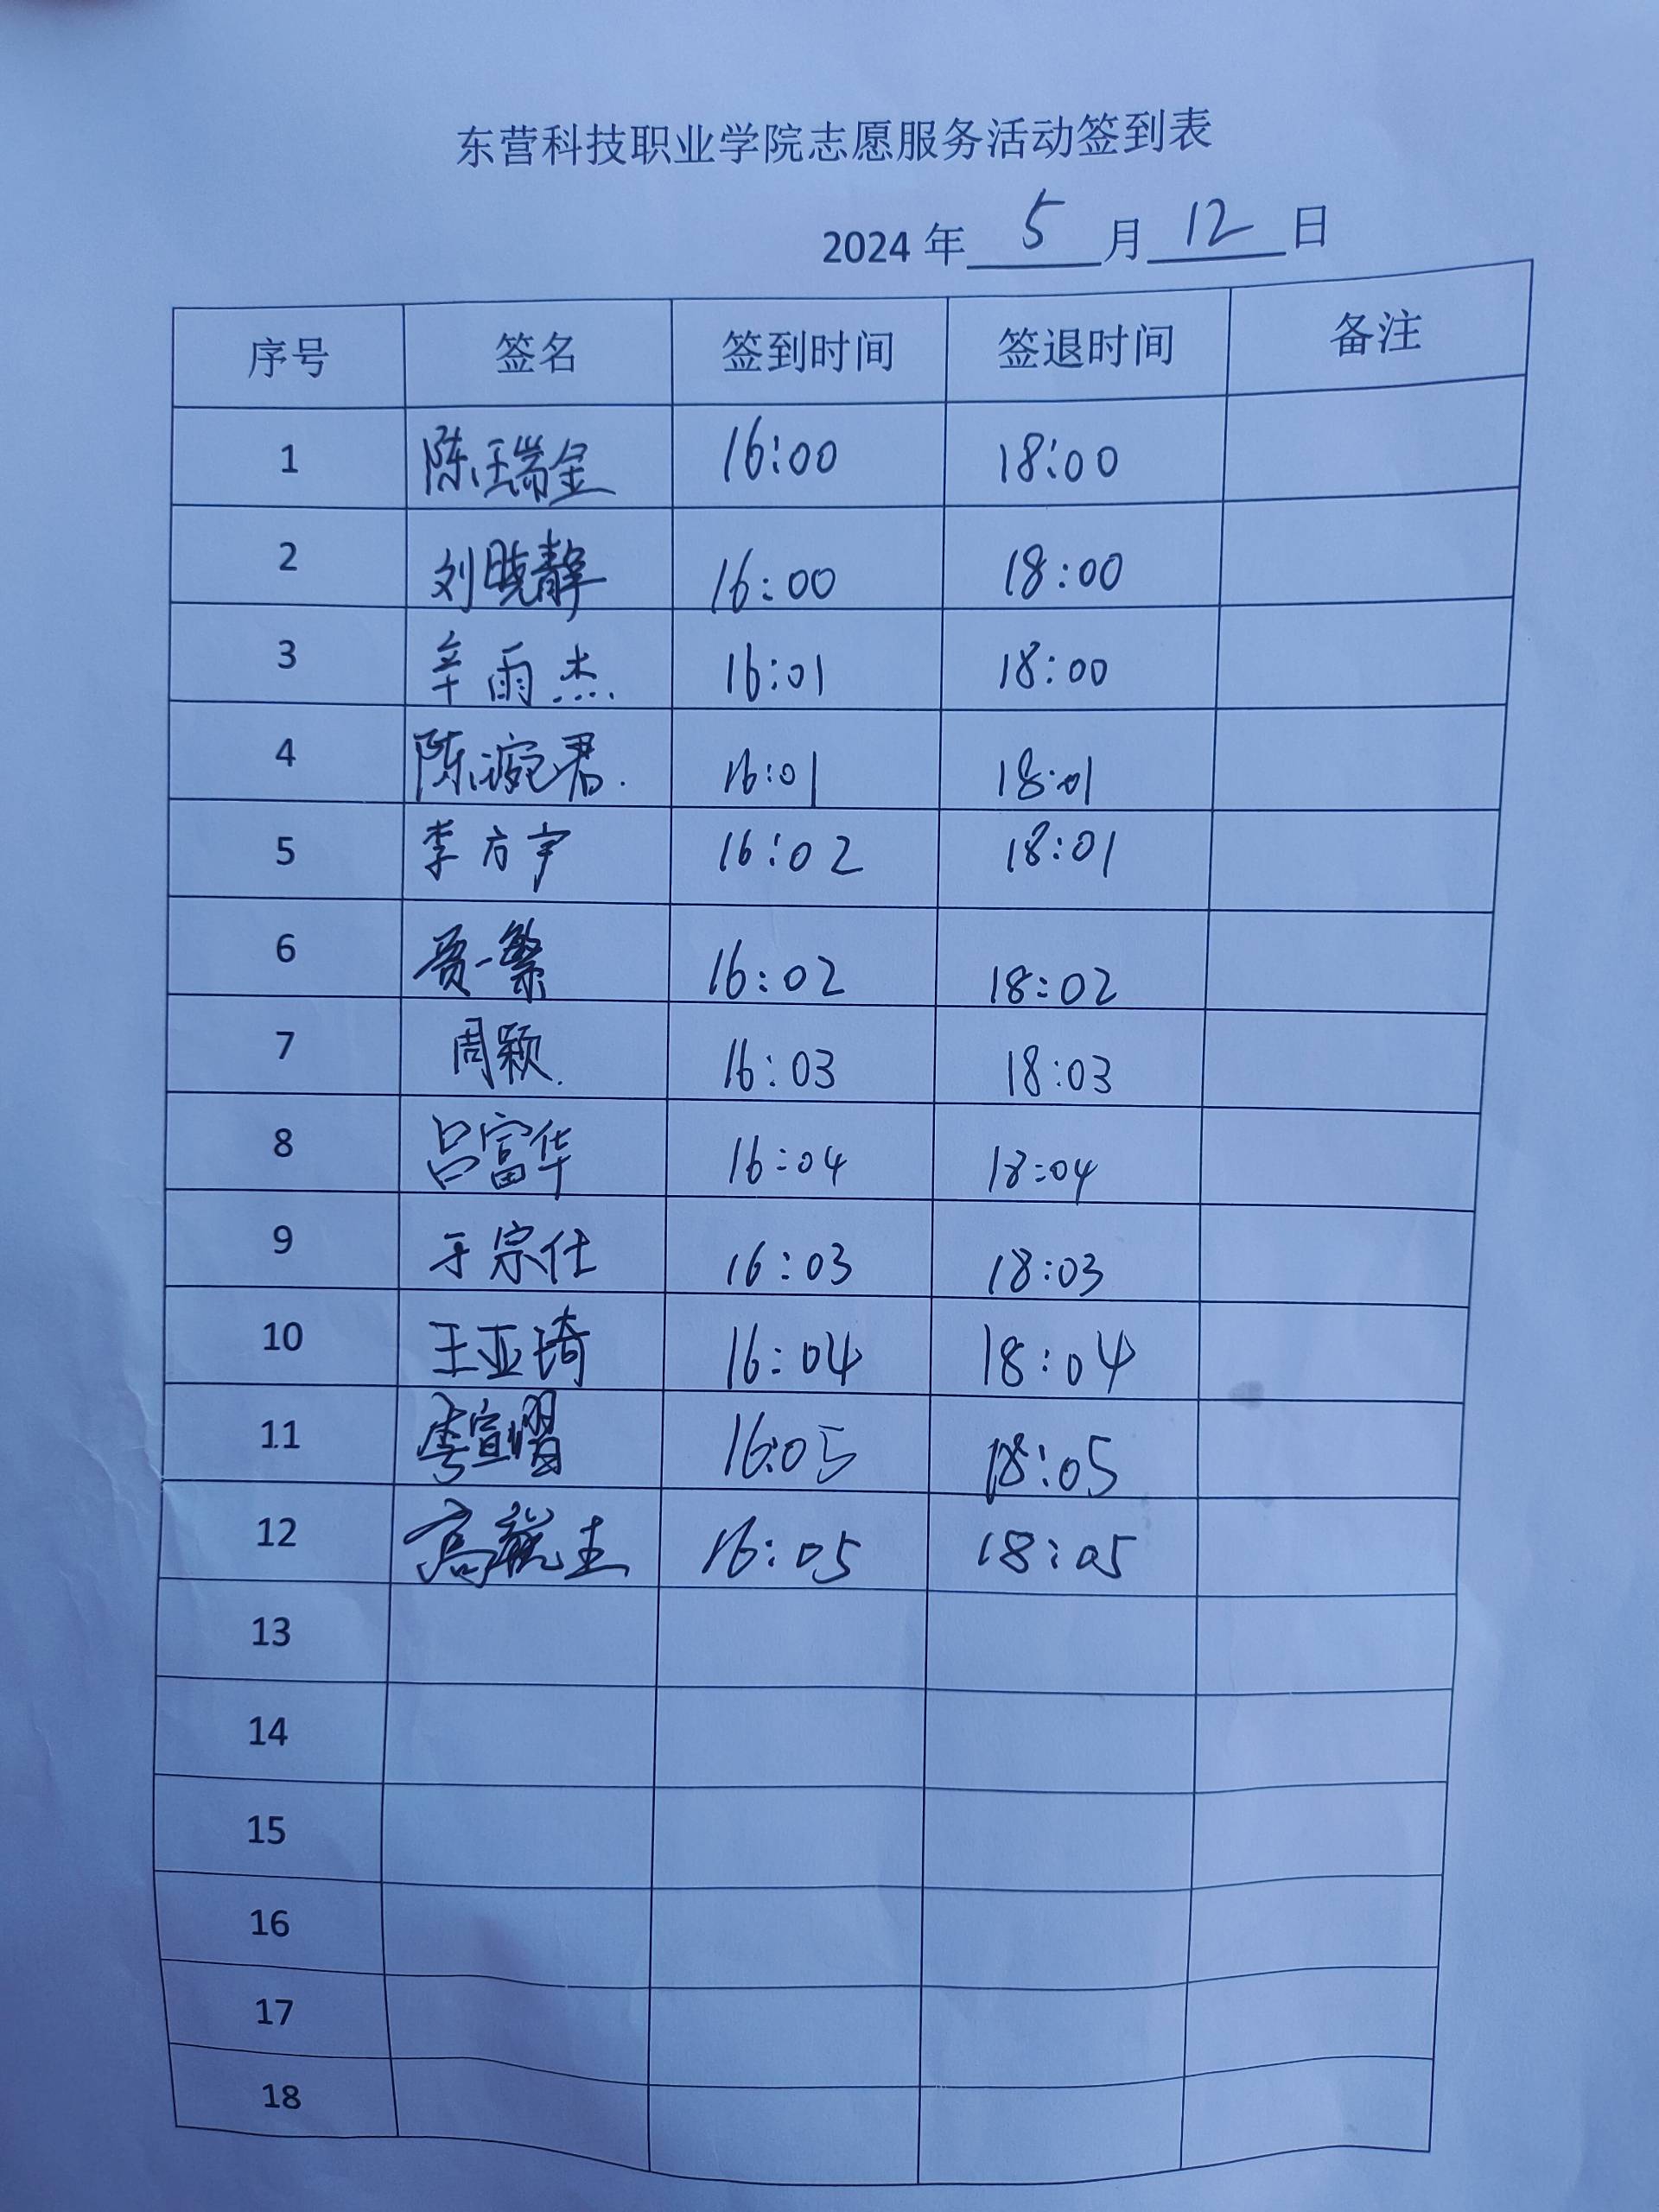 东营科技职业学院志愿服务活动签到表
2024 年 5 月 12 日
序号 签名 签到时间 签退时间 备注
1 陈瑞金 16:00 18:00
2 刘晓静 16:00 18:00
3 辛雨杰 16:01 18:00
4 陈婉君. 16:01 18:01
5 李方宇 16:02 18:01
6 贾一繁 16:02 18:02
7 周颖. 16:03 18:03
8 吕富华 16:04 18:04
9 于宗仕 16:03 18:03
10 王亚琦 16:04 18:04
11 李宣熠 16:05 18:05
12 16:05 18:05
13
14
15
16
17
18